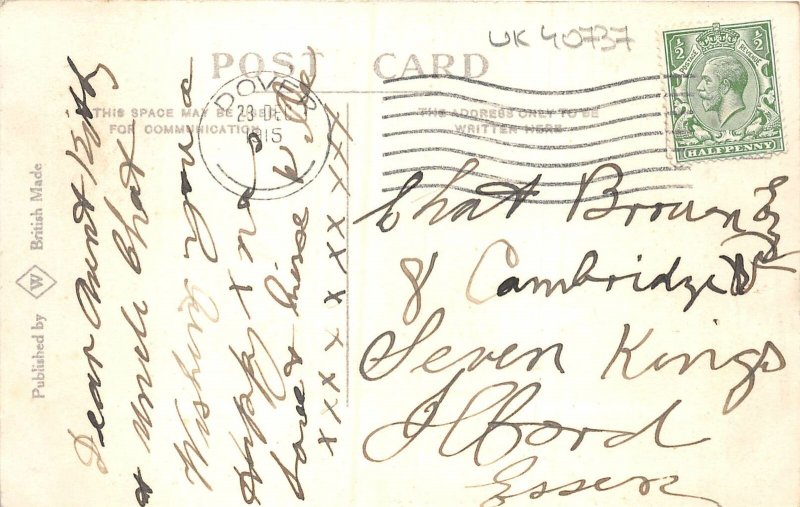 UK 40737
POST CARD
THIS SPACE MAY BE USED
FOR COMMUNICATION
THE ADDRESS ONLY TO BE
WRITTEN HERE
DOVER
23 DEC
1915
½ ½
HALFPENNY
Published by W British Made
Dear Aunt
& Uncle Chat
Wishing you a
Happy Xmas
Love & kisses Willie
xxxxxxxxxx
Chat Brown Esq
8 Cambridge Rd
Seven Kings
Ilford
Essex